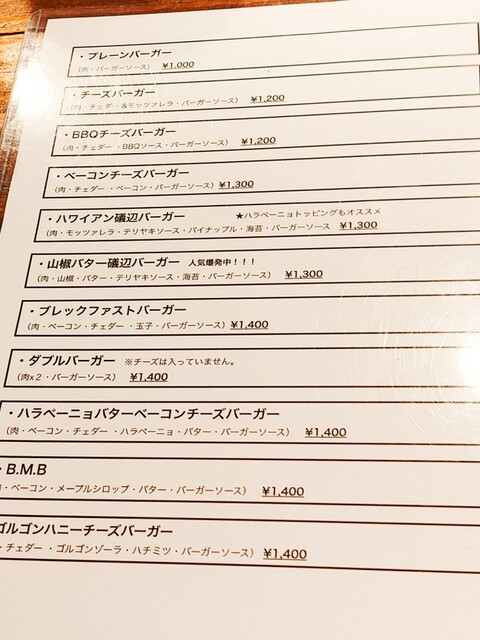 ・プレーンバーガー
（肉・バーガーソース） ¥1,000
・チーズバーガー
（肉・チェダー＆モッツァレラ・バーガーソース） ¥1,200
・BBQチーズバーガー
（肉・チェダー・BBQソース・バーガーソース） ¥1,200
・ベーコンチーズバーガー
（肉・チェダー・ベーコン・バーガーソース）¥1,300
・ハワイアン磯辺バーガー ★ハラペーニョトッピングもオススメ
（肉・モッツァレラ・テリヤキソース・パイナップル・海苔・バーガーソース ¥1,300
・山椒バター磯辺バーガー 人気爆発中！！！
（肉・山椒・バター・テリヤキソース・海苔・バーガーソース） ¥1,300
・ブレックファストバーガー
（肉・ベーコン・チェダー・玉子・バーガーソース）¥1,400
・ダブルバーガー ※チーズは入っていません。
（肉x２・バーガーソース） ¥1,400
・ハラペーニョバターベーコンチーズバーガー
（肉・ベーコン・チェダー・ハラペーニョ・バター・バーガーソース） ¥1,400
・B.M.B
・ベーコン・メープルシロップ・バター・バーガーソース） ¥1,400
ゴルゴンハニーチーズバーガー
・チェダー・ゴルゴンゾーラ・ハチミツ・バーガーソース） ¥1,400